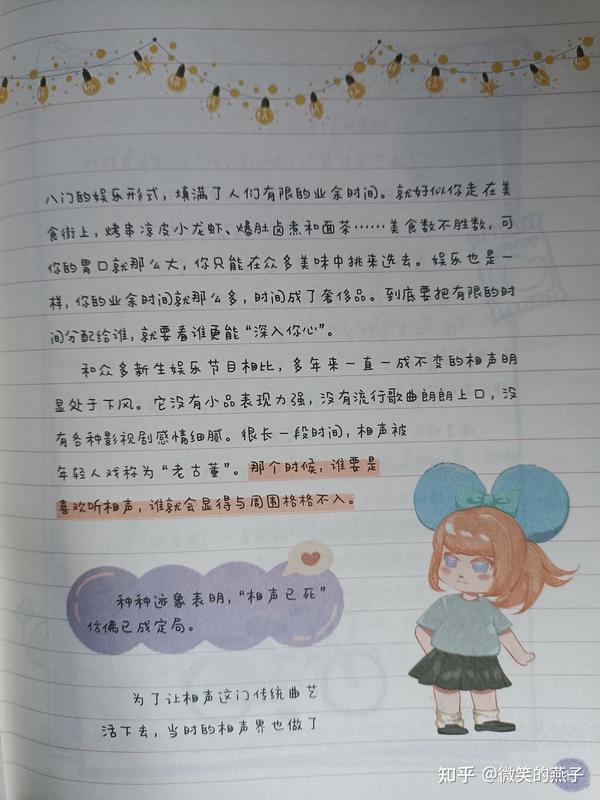 八门的娱乐形式，填满了人们有限的业余时间。就好似你走在美
食街上，烤串凉皮小龙虾、爆肚卤煮和面茶……美食数不胜数，可
你的胃口就那么大，你只能在众多美味中挑来选去。娱乐也是一
样，你的业余时间就那么多，时间成了奢侈品。到底要把有限的时
间分配给谁，就要看谁更能“深入你心”。
和众多新生娱乐节目相比，多年来一直一成不变的相声明
显处于下风。它没有小品表现力强，没有流行歌曲朗朗上口，没
有各种影视剧感情细腻。很长一段时间，相声被
年轻人戏称为“老古董”。那个时候，谁要是
喜欢听相声，谁就会显得与周围格格不入。
种种迹象表明，“相声已死”
仿佛已成定局。
为了让相声这门传统曲艺
活下去，当时的相声界也做了
知乎 @微笑的燕子